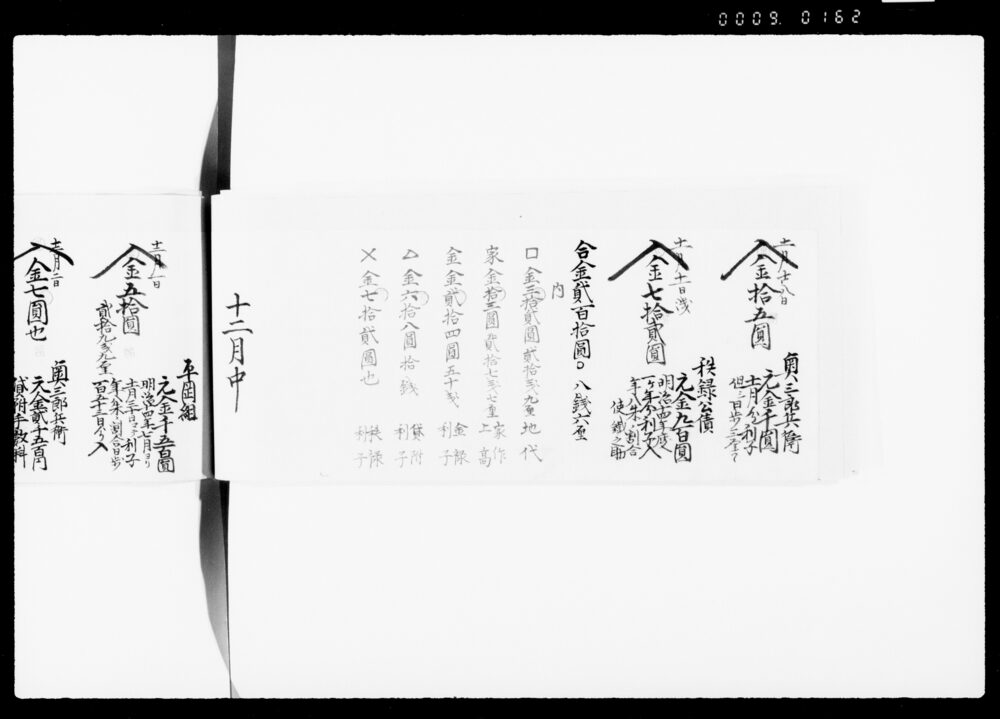 0009. 0162
十一月十八日
入金拾五圓
奥三郎兵衛
元金千圓
十一月分利子
但
入金七拾貳圓
秩録公債
元金九百圓
明治四年度
一ヶ年分利子入
年八朱ノ割合
使
合金貳百拾圓〇八銭六厘
内
口金三拾貳圓貳拾銭九厘 地代
家金拾三圓貳拾七銭七厘 家作上高
金金貳拾四圓五十銭 金禄利子
△金六拾八圓拾銭 貸附利子
×金七拾貳圓也 秩禄利子
十二月中
入金五拾圓
貳拾九銭九厘
平岡組
元金千五百圓
明治四年七月ヨリ
十一月三十日マテ利子
年八朱ノ割合日歩
入金七圓也
奥三郎兵衛
元金貳千五百円
貸附手数料